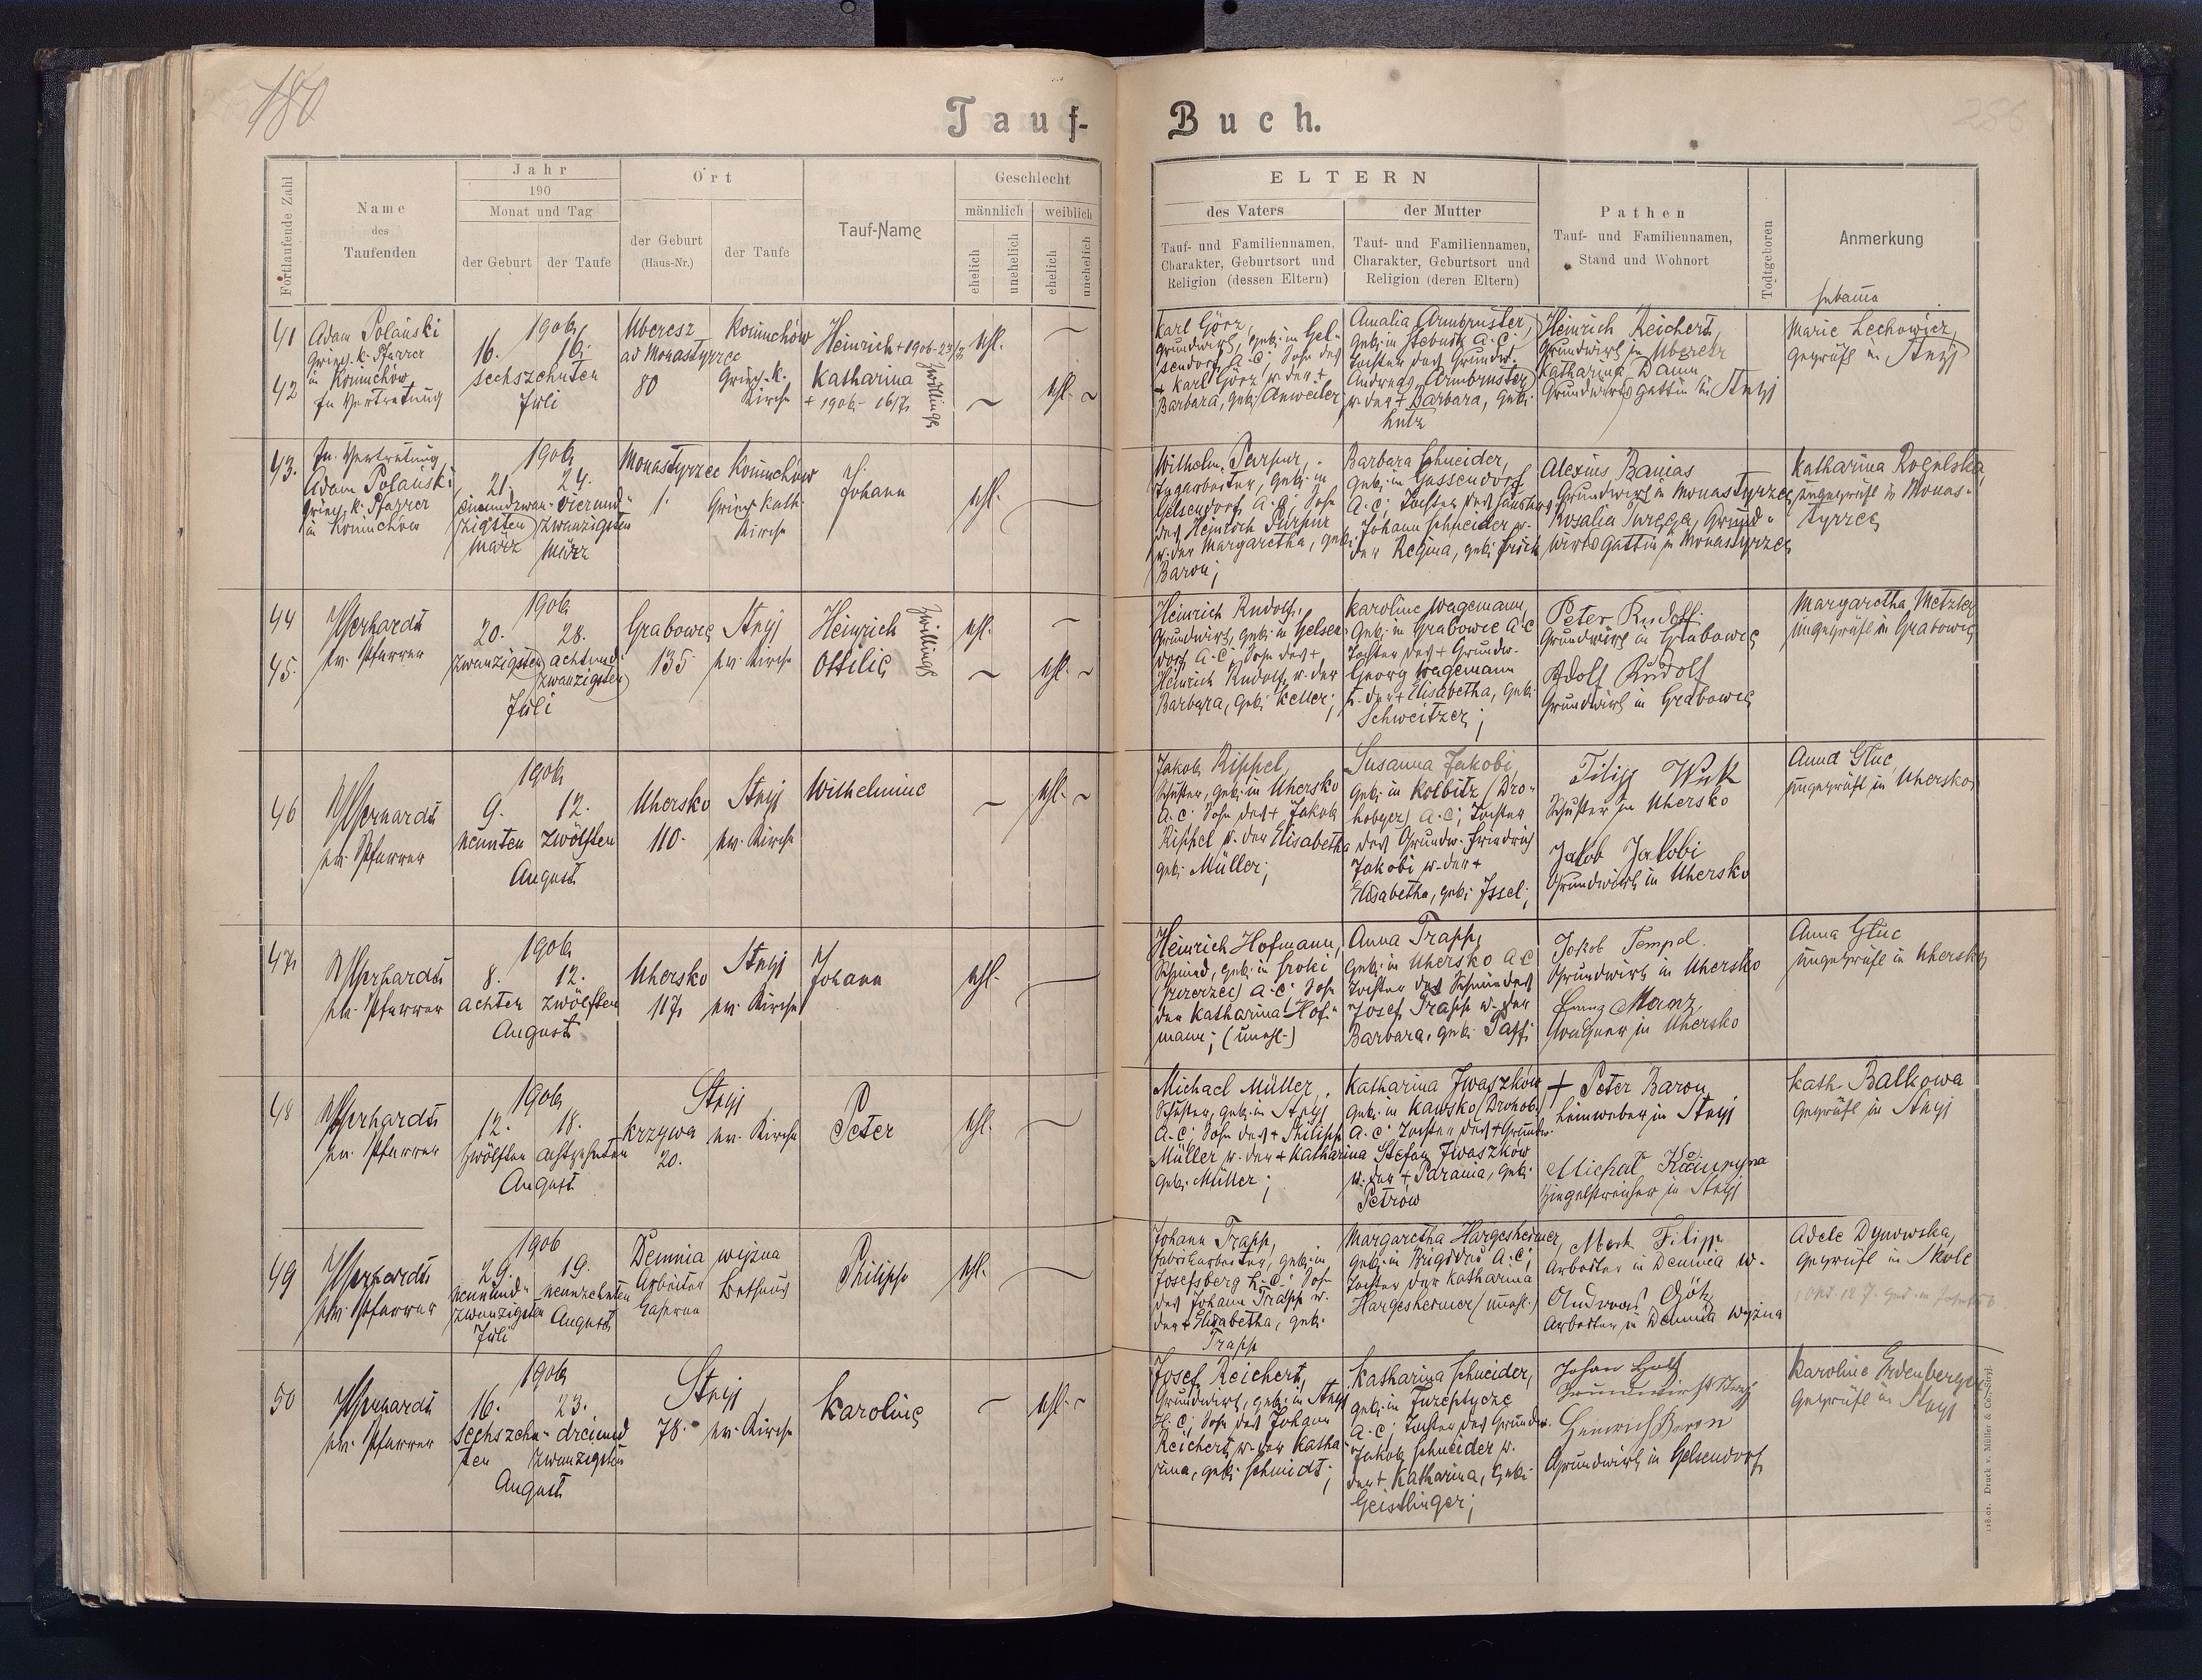 180
256
Tauf-
Buch.
Fortlaufende Zahl
Name
des
Taufenden
Jahr
190
Monat und Tag
der Geburt
der Taufe
Ort
der Geburt
(Haus-Nr.)
der Taufe
Tauf-Name
Geschlecht
männlich
weiblich
ehelich
unehelich
ehelich
unehelich
ELTERN
des Vaters
Tauf- und Familiennamen,
Charakter, Geburtsort und
Religion (dessen Eltern)
der Mutter
Tauf- und Familiennamen,
Charakter, Geburtsort und
Religion (deren Eltern)
Pathen
Tauf- und Familiennamen,
Stand und Wohnort
Todtgeboren
Anmerkung
Hebamme
41
42
Adam Polański
Griech. k. Pfarrer
in Koniuchów
In Vertretung
1906
16. 16.
sechszehnten
Juli
Uberesz
ad Monastyrzec
80
Koniuchów
Griech. k.
Kirche
Heinrich + 1906 - 23/7
Katharina
+ 1906 - 16/7
Zwillinge
ehl.
ehl.
Karl Görz,
Grundwirt, geb. in Gel-
sendorf A. C.; Sohn des
+ Karl Görz u. der +
Barbara, geb. Anweiler
Amalia Armbruster,
geb. in Stebnik A. C.;
Tochter des Grundw.
Andreas Armbruster
u. der + Barbara, geb.
Lutz
Heinrich Reichert,
Grundwirt in Uberesz
Katharina Daum
Grundwirts Gattin in Stryj
Marie Lechowicz,
geprüft in Stryj
43.
In Vertretung
Adam Polański
Griech. k. Pfarrer
in Koniuchów
1906
21. 24.
einundzwan- vierund-
zigsten zwanzigsten
März März
Monastyrzec
1.
Koniuchów
Griech. kath.
Kirche
Johann
ehl.
Wilhelm Purpur,
Sohn
Gelsendorf A. C.;
des Heinrich Purpur
u. der Margaretha, geb.
Baron;
Barbara Schneider,
geb. in Gassendorf
A. C.; Tochter des
Johann Schneider u.
der Regina, geb.
Alexius Banias
Grundwirt in Monastyrzec
Rosalia Grund-
wirts Gattin in Monastyrzec
Katharina Rogulska,
ungeprüft in Monas-
tyrzec
44
45.
Gerhardt
ev. Pfarrer
1906
20. 28.
zwanzigsten achtund-
zwanzigsten
Juli
Grabowce
135
Stryj
ev. Kirche
Heinrich
Ottilie
Zwillinge
ehl.
ehl.
Heinrich Rudolf,
Grundwirt, geb. in Gelsen-
dorf A. C.; Sohn des +
Heinrich Rudolf u. der
Barbara, geb. Keller;
Karoline Wagemann,
geb. in Grabowce A. C.
Tochter des + Grundw.
Georg Wagemann
u. der + Elisabetha, geb.
Schweitzer;
Peter Rudolf
Grundwirt in Grabowce
Adolf Rudolf
Grundwirt in Grabowce
Margaretha Metzler
ungeprüft in Grabowce
46
Gerhardt
ev. Pfarrer
1906
9. 12.
neunten zwölften
August
Uhersko
110.
Stryj
ev. Kirche
Wilhelmine
ehl.
Jakob Rippel,
Schuster, geb. in Uhersko
A. C. Sohn des + Jakob
Rippel u. der Elisabetha
geb. Müller;
Susanna Jakobi,
geb. in Kolbitz (Dro-
hobycz) A. C.; Tochter
des Grundw. Friedrich
Jakobi u. der +
Elisabetha, geb. Issel;
Filipp
Schuster in Uhersko
Jakob Jakobi
Grundwirt in Uhersko
Anna Gluc
ungeprüft in Uhersko
47
Gerhardt
ev. Pfarrer
1906
8. 12.
achten zwölften
August
Uhersko
117
Stryj
ev. Kirche
Johann
ehl.
Heinrich Hofmann,
Schmied, geb. in
A. C. Sohn
der Katharina Hof-
mann; (unehl.)
Anna Trapp,
geb. in Uhersko A. C
Tochter des Schmiedes
Josef Trapp u. der
Barbara, geb.
Jakob Tempel.
Grundwirt in Uhersko
Franz Manz
Wagner in Uhersko
Anna Gluc
ungeprüft in Uhersko
48
Gerhardt
ev. Pfarrer
1906
12. 18.
zwölften achtzehnten
August
Stryj
Krzywa
20.
ev. Kirche
Peter
ehl.
Michael Müller,
Schuster, geb. in Stryj
A. C; Sohn des + Philipp
Müller u. der + Katharina
geb. Müller;
Katharina Iwaszków
geb. in Kawsko (Drohob.)
A. C. Tochter des + Grundw.
Stefan Iwaszków
u. der + Parania, geb.
Petrów
+ Peter Baron
Leinweber in Stryj
Michał
Ziegelstreicher in Stryj
Kath. Balkowa
geprüft in Stryj
49
Gerhardt
ev. Pfarrer
1906
29. 19.
neunund- neunzehnten
zwanzigsten August
Juli
Demnia wyżna
Arbeiter
Bethaus
Philipp
ehl.
Johann Trapp,
Fabriksarbeiter, geb. in
Josefsberg H. C. Sohn
des Johann Trapp u.
der + Elisabetha, geb.
Trapp
Margaretha Hargesheimer,
geb. in Brigidau A. C.;
Tochter der Katharina
Hargesheimer (unehl.)
Mock Filipp
Arbeiter in Demnia w.
Andreas Götz
Arbeiter in Demnia wyżna
Adele Dynowska,
geprüft in Skole
50
Gerhardt
ev. Pfarrer
1906
16. 23.
sechszehn- dreiund
ten zwanzigsten
August
Stryj
78.
ev. Kirche
Karoline
ehl.
Josef Reichert,
Grundwirt, geb. in Stryj
H. C; Sohn des Johann
Reichert u. der Katha-
rina, geb. Schmidt;
Katharina Schneider,
geb. in
A. C; Tochter des Grundw.
Jakob Schneider u.
der + Katharina, geb.
Geistlinger;
Johan
Heinrich Baron
Grundwirt in Gelsendorf
Karoline
geprüft in Stryj
118.01. Druck v. Müller & Co., Stryj.